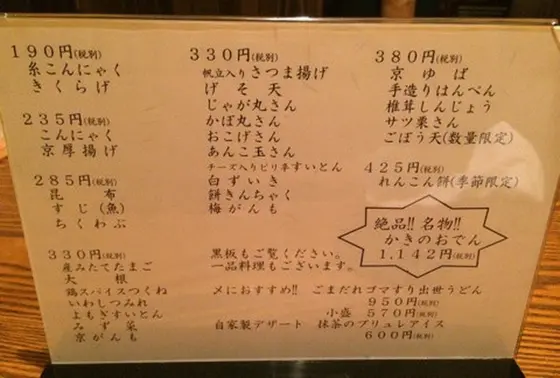 190円(税別)
糸こんにゃく
きくらげ
235円(税別)
こんにゃく
京厚揚げ
285円(税別)
昆布
すじ(魚)
ちくわぶ
330円(税別)
産みたてたまご
大根
鶏スパイスつくね
いわしつみれ
よもぎすいとん
みず菜
京がんも
330円(税別)
帆立入りさつま揚げ
げそ天
じゃが丸さん
かぼ丸さん
おこげさん
あんこ玉さん
チーズ入りピリ辛すいとん
白ずいき
餅きんちゃく
梅がんも
380円(税別)
京ゆば
手造りはんぺん
椎茸しんじょう
サツ栗さん
ごぼう天(数量限定)
425円(税別)
れんこん餅(季節限定)
絶品!!名物!!
かきのおでん
1,142円(税別)
黒板もご覧ください。
一品料理もございます。
〆におすすめ!! ごまだれゴマすり出世うどん
950円(税別)
小盛 570円(税別)
自家製デザート 抹茶のブリュレアイス
600円(税別)